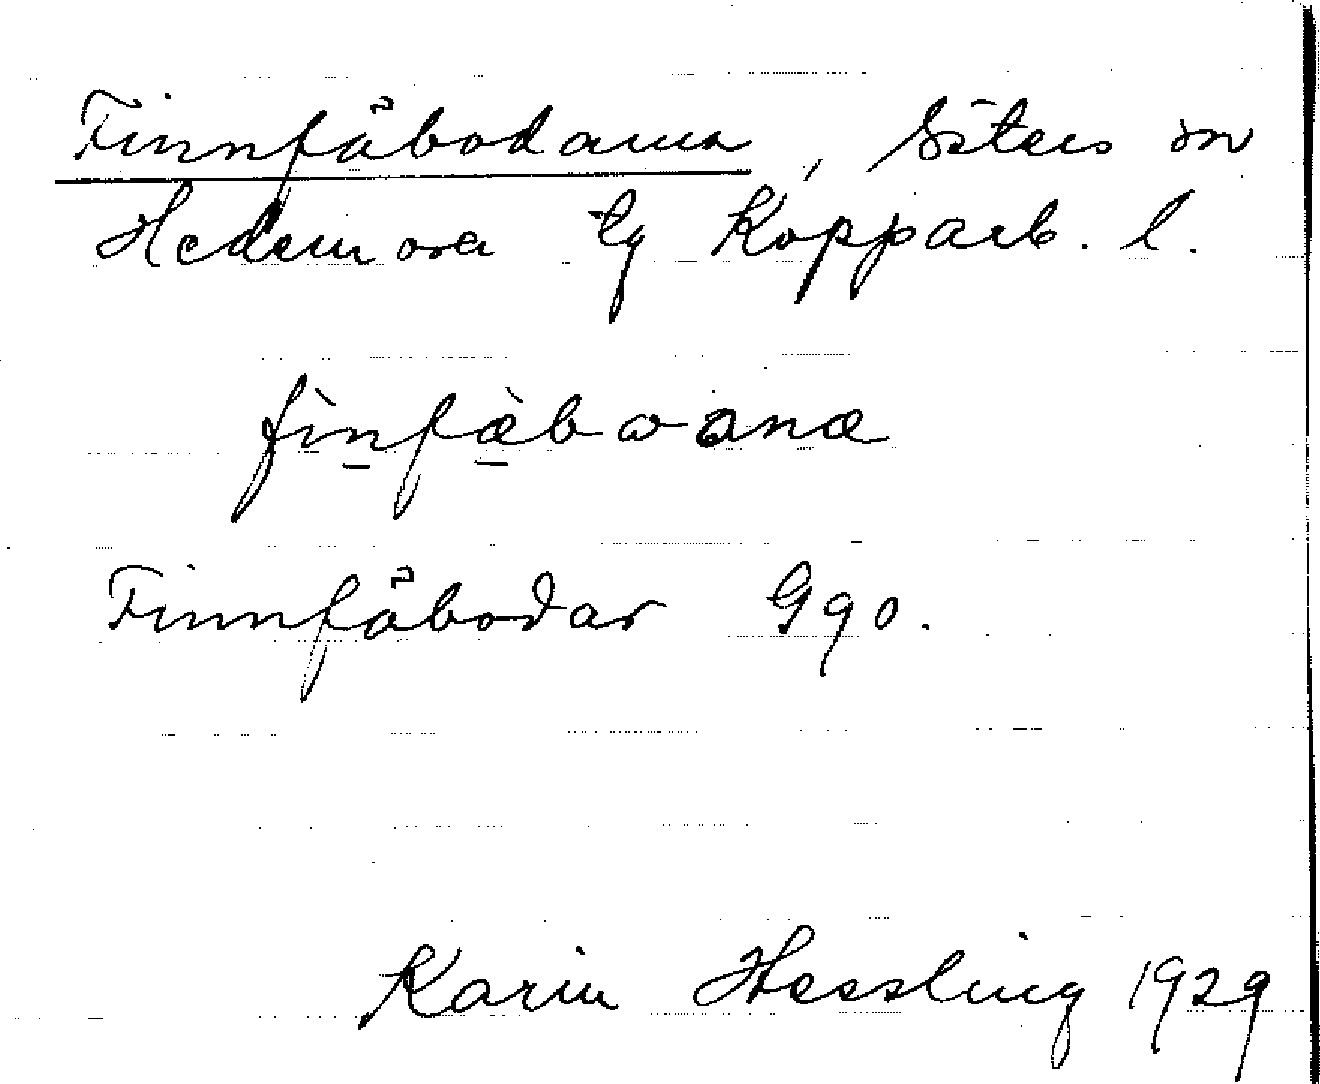 Finnfäbodarna, Säters sn
Hedemora tg Kopparb. l.
fìnfæ̀bωanæ
Finnfäbodar Gqo.
Karin Hessling 1929